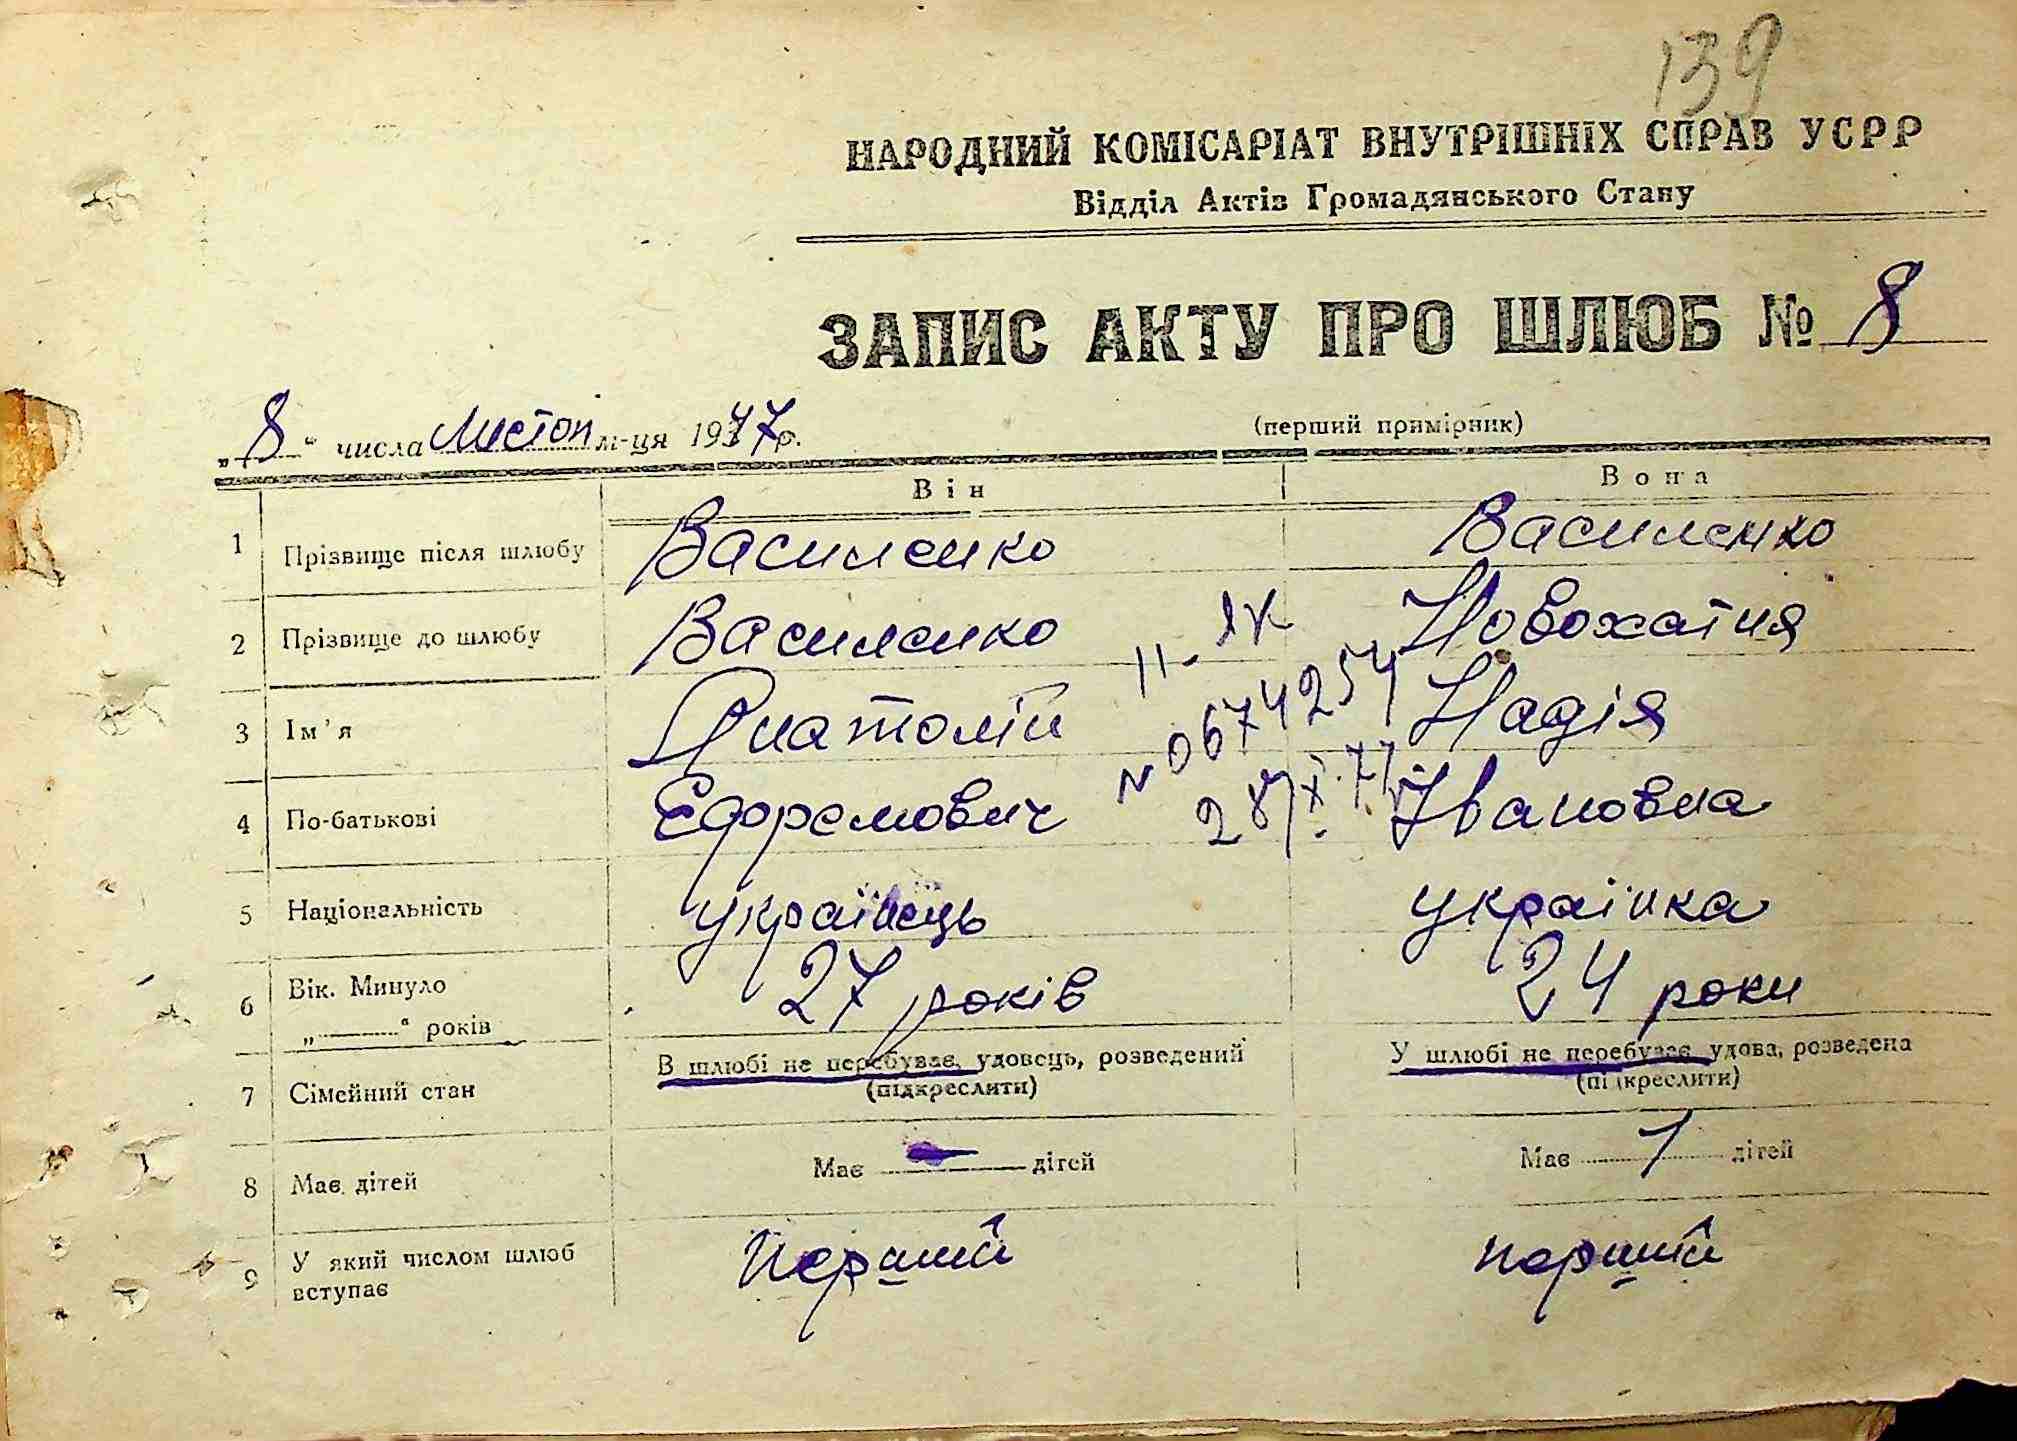 139
НАРОДНИЙ КОМІСАРІАТ ВНУТРІШНІХ СПРАВ УСРР
Відділ Актів Громадянського Стану
ЗАПИС АКТУ ПРО ШЛЮБ № 8
(перший примірник)
„8“ числа Листоп м-ця 1947р.
Він Вона
1 Прізвище після шлюбу Василенко Василенко
2 Прізвище до шлюбу Василенко Новохатня
3 Ім'я Анатолій Надія
4 По-батькові Єфремович Івановна
II-ЯК
№ 0674254
28/XI.77
5 Національність українець українка
6 Вік. Минуло „ “ років 27 років 24 роки
7 Сімейний стан В шлюбі не перебуває, удовець, розведений У шлюбі не перебуває удова, розведена
(підкреслити) (підкреслити)
8 Має дітей Має — дітей Має 1 дітей
9 У який числом шлюб вступає перший перший